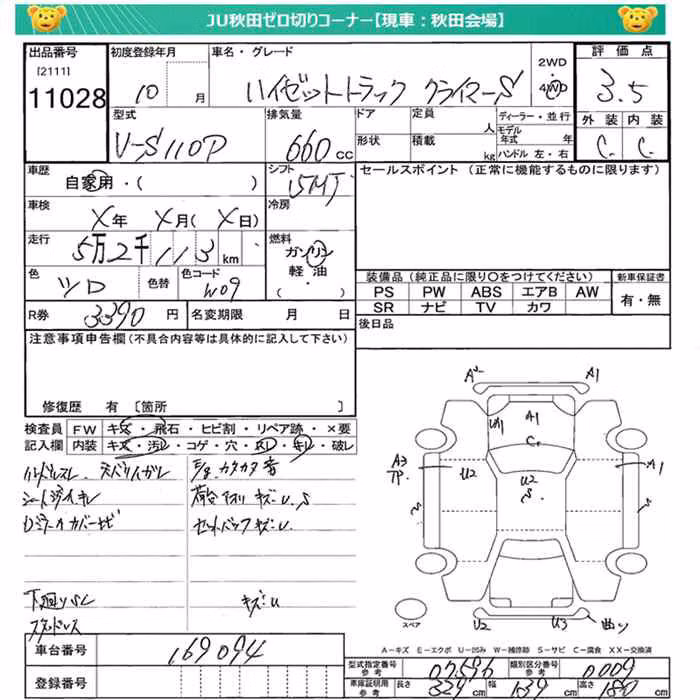 JU秋田ゼロ切りコーナー【現車：秋田会場】
出品番号 初度登録年月 車名・グレード 2WD 評価点
[2111]
11028 10 月 ハイゼットトラック クライマーS 4WD 3.5
型式 排気量 ドア 定員 人 ディーラー・並行 外装 内装
V-S110P 660cc 形状 積載 kg モデル年式 年 ハンドル 左・右 C- C-
車歴 自家用・( ) シフト 5MT セールスポイント (正常に機能するものに限ります)
車検 X年 X月(X日) 冷房
走行 5万2千113km 燃料 ガソリン
色 シロ 色替 色コード W09 軽油・( )
装備品(純正品に限り○をつけてください) 新車保証書
PS PW ABS エアB AW 有・無
SR ナビ TV カワ
R券 3390円 名変期限 月 日 後日品
注意事項申告欄(不具合内容等は具体的に記入して下さい)
修復歴 有 〔箇所 〕
検査員 FW キズ・飛石・ヒビ割・リペア跡・×要
記入欄 内装 キズ・汚レ・コゲ・穴・スレ・キレ・破レ
ハンドルスレ
シート キレ
カバー サビ
カタカタ音
荷台アオリ キズ U.S
セットバックキズU.
下廻りサビ キズU
スタッドレス
A2 A1
A1 A1
C
A3 U2 U2 A1
S
U2 U3 曲り
スペア
A－キズ E－エクボ U－凹み W－補修跡 S－サビ C－腐食 XX－交換済
車台番号 169094
登録番号
型式指定番号 参考 07596 類別区分番号 参考 0009
車庫証明用 参考 長さ 329cm 幅 139cm 高さ 180cm